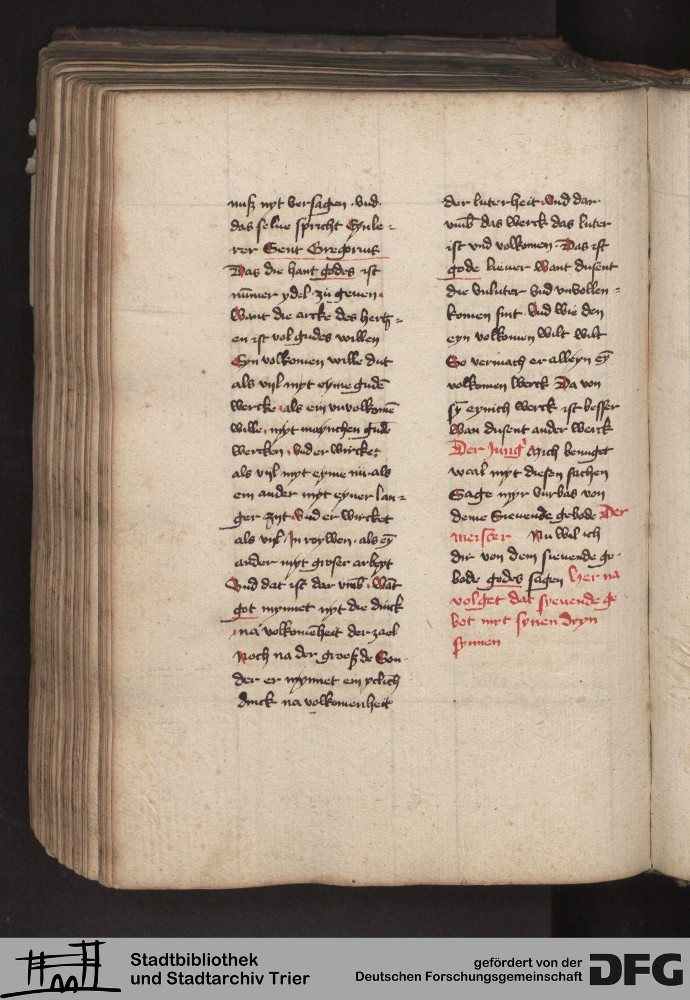 nuß nyt versagen . Vnd
das selue spricht Eyn le-
rer Sent Gregorius
Das die hant godes ist
nümer ydel zü geuen .
Want die arcke des hertz-
en ist vol gudes willen
Eyn volkomen wille dut
als vijl myt eyme gudē
wercke . als ein vnvolkomē
wille . myt maynchen gudē
wercken . vnd er wircket
als vijl myt eyme nü . als
ein ander myt eyner lan-
ger zijt vnd er wircket
als vijl In roywen . als eȳ
ander myt groser arbeyt
Vnd dat ist dar vmb . Wāt
got mynnet nyt die dinck
na volkomēheit der zael
Noch na der groeßde Son-
der er mynnet ein yclich
dinck na volkomenheit
der luterheit . Vnd dar
vmb das werck das luter
ist vnd volkomen . Das ist
gode lieuer Want dusent
die vnluter vnd vnvollen-
komen sint . Vnd wie den
eyn volkomen wilt wilt
So vermach er alleyn eȳ
volkomen werck Da von
sȳ eynich werck ist besser
wan dusent ander werck
Der Jung' Mich benuget
wael myt diesen sachen
Sage myr vurbas von
deme Sieuende gebode Der
meister Nu wil ich
dir von dem sieuende ge-
bode godes sagen Her na
volget dat syeuende ge
bot myt synen dryn
synnen
Stadtbibliothek
und Stadtarchiv Trier
gefördert von der
Deutschen Forschungsgemeinschaft
DFG